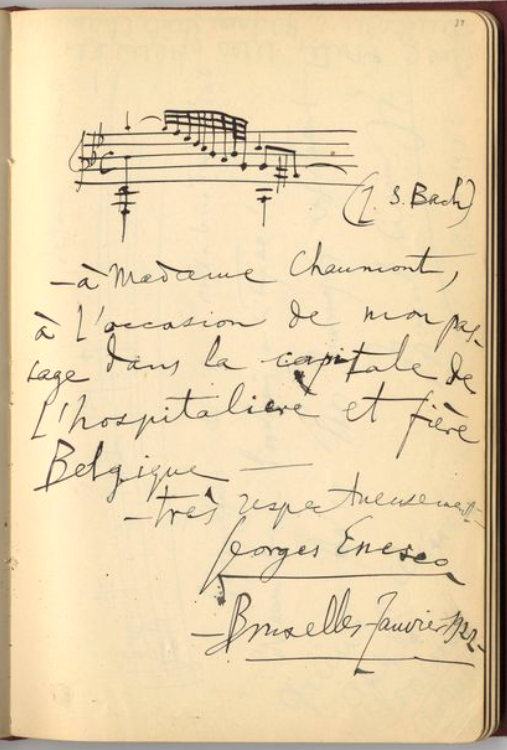 (J. S. Bach)
– à Madame Chaumont,
à l'occasion de mon pas-
sage dans la capitale de
l'hospitalière et fière
Belgique —
– très respectueusement –
Georges Enesco
– Bruxelles – Janvier 1922 –